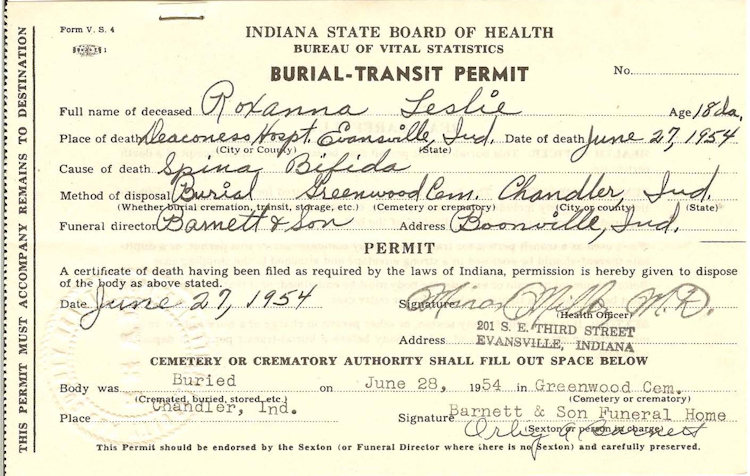 Form V. S. 4
INDIANA STATE BOARD OF HEALTH
BUREAU OF VITAL STATISTICS
BURIAL-TRANSIT PERMIT
No.
Full name of deceased Roxanna Leslie Age 18 da.
Place of death Deaconess Hospt. Evansville, Ind. Date of death June 27, 1954
(City or County) (State)
Cause of death Spina Bifida
Method of disposal Burial Greenwood Cem. Chandler, Ind.
(Whether burial cremation, transit, storage, etc.) (Cemetery or crematory) (City or county) (State)
Funeral director Barnett & Son Address Boonville, Ind.
PERMIT
A certificate of death having been filed as required by the laws of Indiana, permission is hereby given to dispose
of the body as above stated.
Date June 27, 1954 Signature Minor Miller, M.D.
(Health Officer)
Address 201 S. E. THIRD STREET
EVANSVILLE, INDIANA
CEMETERY OR CREMATORY AUTHORITY SHALL FILL OUT SPACE BELOW
Body was Buried on June 28, 1954 in Greenwood Cem.
(Cremated, buried, stored, etc.) (Cemetery or crematory)
Place Chandler, Ind. Signature Barnett & Son Funeral Home
(Sexton or person in charge)
Orby A. Barnett
This Permit should be endorsed by the Sexton (or Funeral Director where there is no Sexton) and carefully preserved.
THIS PERMIT MUST ACCOMPANY REMAINS TO DESTINATION